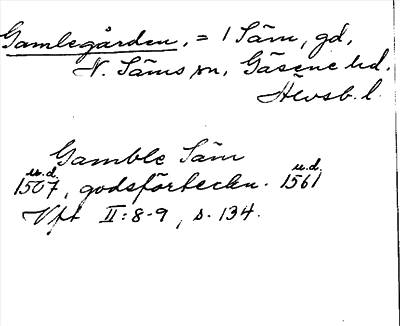 Gamlegården, = 1 Säm, gd,
N. Säms sn, Gäsene hd.
Älvsb. l.
Gamble Säm
u.d. u.d.
1507, godsförteckn. 1561
Vft II:8-9, s. 134.